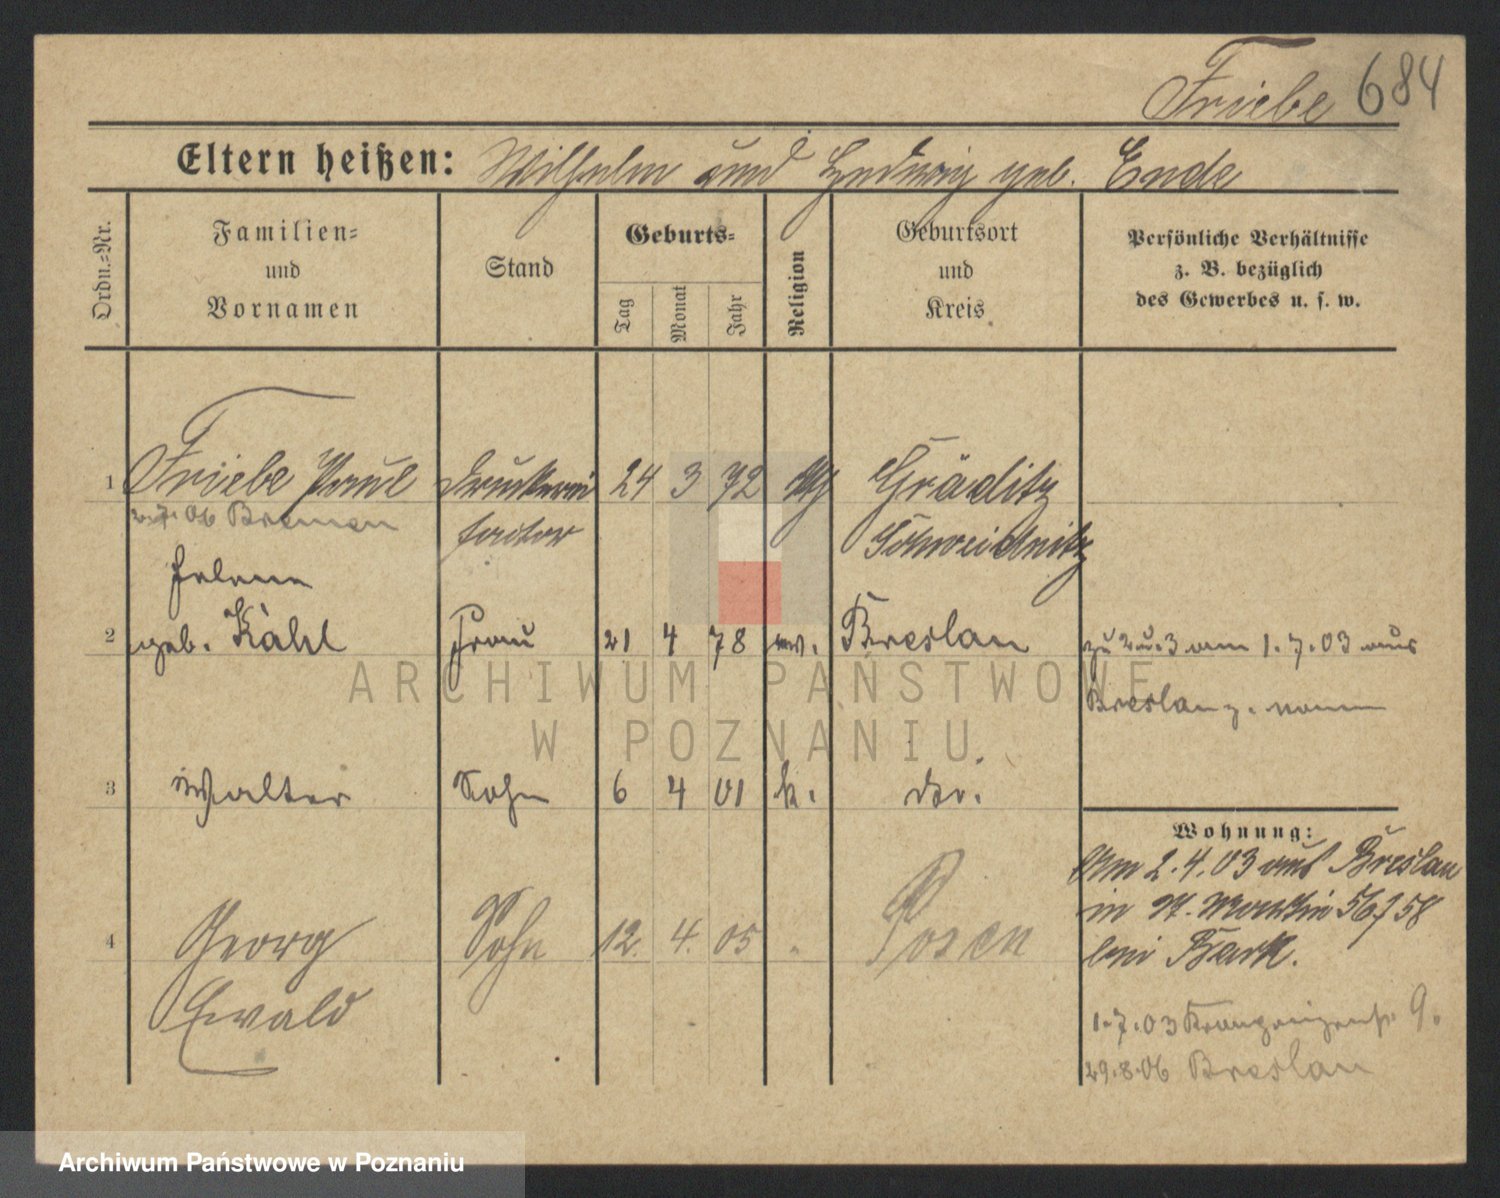 Friebe 684
Eltern heißen: Wilhelm und Hedwig geb. Ende
Ordn.=Nr.
Familien=
und
Vornamen
Stand
Geburts=
Tag
Monat
Jahr
Religion
Geburtsort
und
Kreis
Persönliche Verhältnisse
z. B. bezüglich
des Gewerbes u. s. w.
1 Friebe Paul Druckerei 24 3 72 Gräditz
2.7.06 Bremen faktor Schweidnitz
Helene
2 geb. Kahl Frau 21 4 78 ev. Breslau zu 2 u. 3 am 1.7.03 aus
Breslau z.
3 Walter Sohn 6 4 01 k. do.
Wohnung:
Am 2.4.03 aus Breslau
in St. Martin 56/58
4 Georg Sohn 12. 4. 05 Posen bei Bark.
Ewald
1.7.03 9.
29.8.06 Breslau
ARCHIWUM PAŃSTWOWE
W POZNANIU
Archiwum Państwowe w Poznaniu